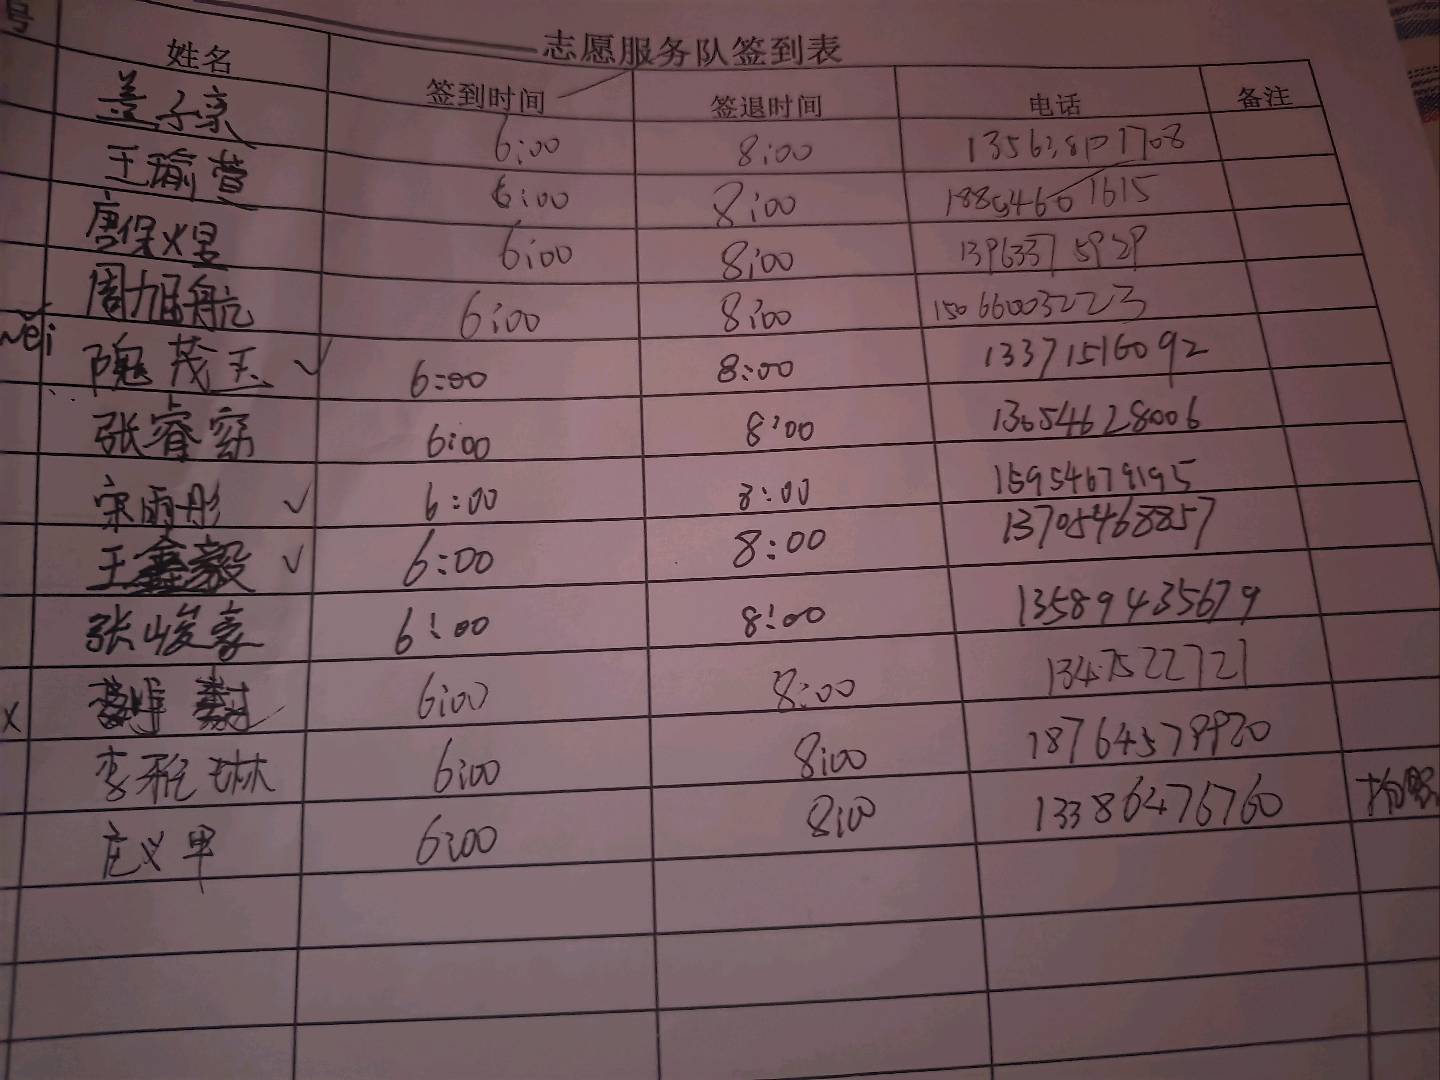 志愿服务队签到表
号 姓名 签到时间 签退时间 电话 备注
盖子豪 6:00 8:00
王瑜萱 6:00 8:00 1615
唐保煜 6:00 8:00 13963375929
周旭航 6:00 8:00 15066003223
něi 隗茂玉 ✓ 6:00 8:00 13371516092
张睿 6:00 8:00 13654628006
宋雨彤 ✓ 6:00 8:00 15954679195
王鑫毅 ✓ 6:00 8:00 13705468857
张峻豪 6:00 8:00 13589435679
x 6:00 8:00 1347522721
李雅琳 6:00 8:00 18764579920
庄义甲 6:00 8:00 13386476760